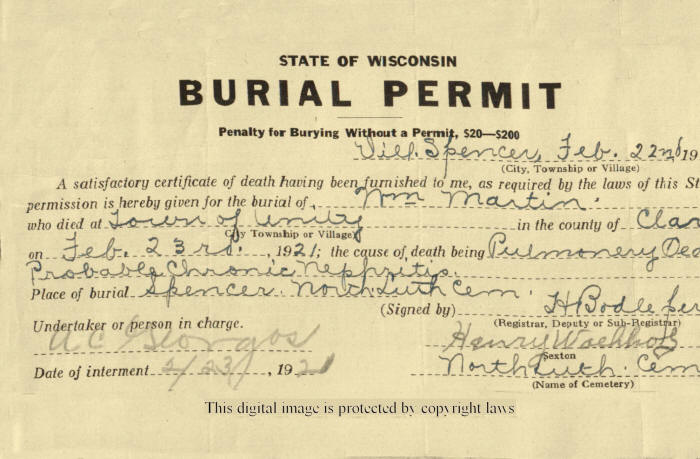 STATE OF WISCONSIN
BURIAL PERMIT
Penalty for Burying Without a Permit, $20—$200
Vill. Spencer, Feb. 22nd 19
(City, Township or Village)
A satisfactory certificate of death having been furnished to me, as required by the laws of this St
permission is hereby given for the burial of Wm Martin.
who died at Town of Unity in the county of Clar
City Township or Village)
on Feb. 23rd. , 1921; the cause of death being Pulmonery Oed
Probable Chronic Nephritis.
Place of burial Spencer North Luth Cem.
(Signed by) H Bodle
(Registrar, Deputy or Sub-Registrar)
Undertaker or person in charge.
A C Henry
Sexton
Date of interment 2/23/, 1921 North Luth. Cem
(Name of Cemetery)
This digital image is protected by copyright laws